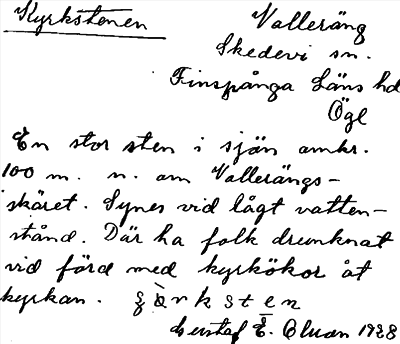 Kyrkstenen
Valleräng
Skedevi sn.
Finspånga Läns hd
Ögl
En stor sten i sjön omkr.
100 m. n. om Vallerängs-
skäret. Synes vid lågt vatten-
stånd. Där ha folk drunknat
vid färd med kyrkökor åt
kyrkan.
Gustaf E.
1928